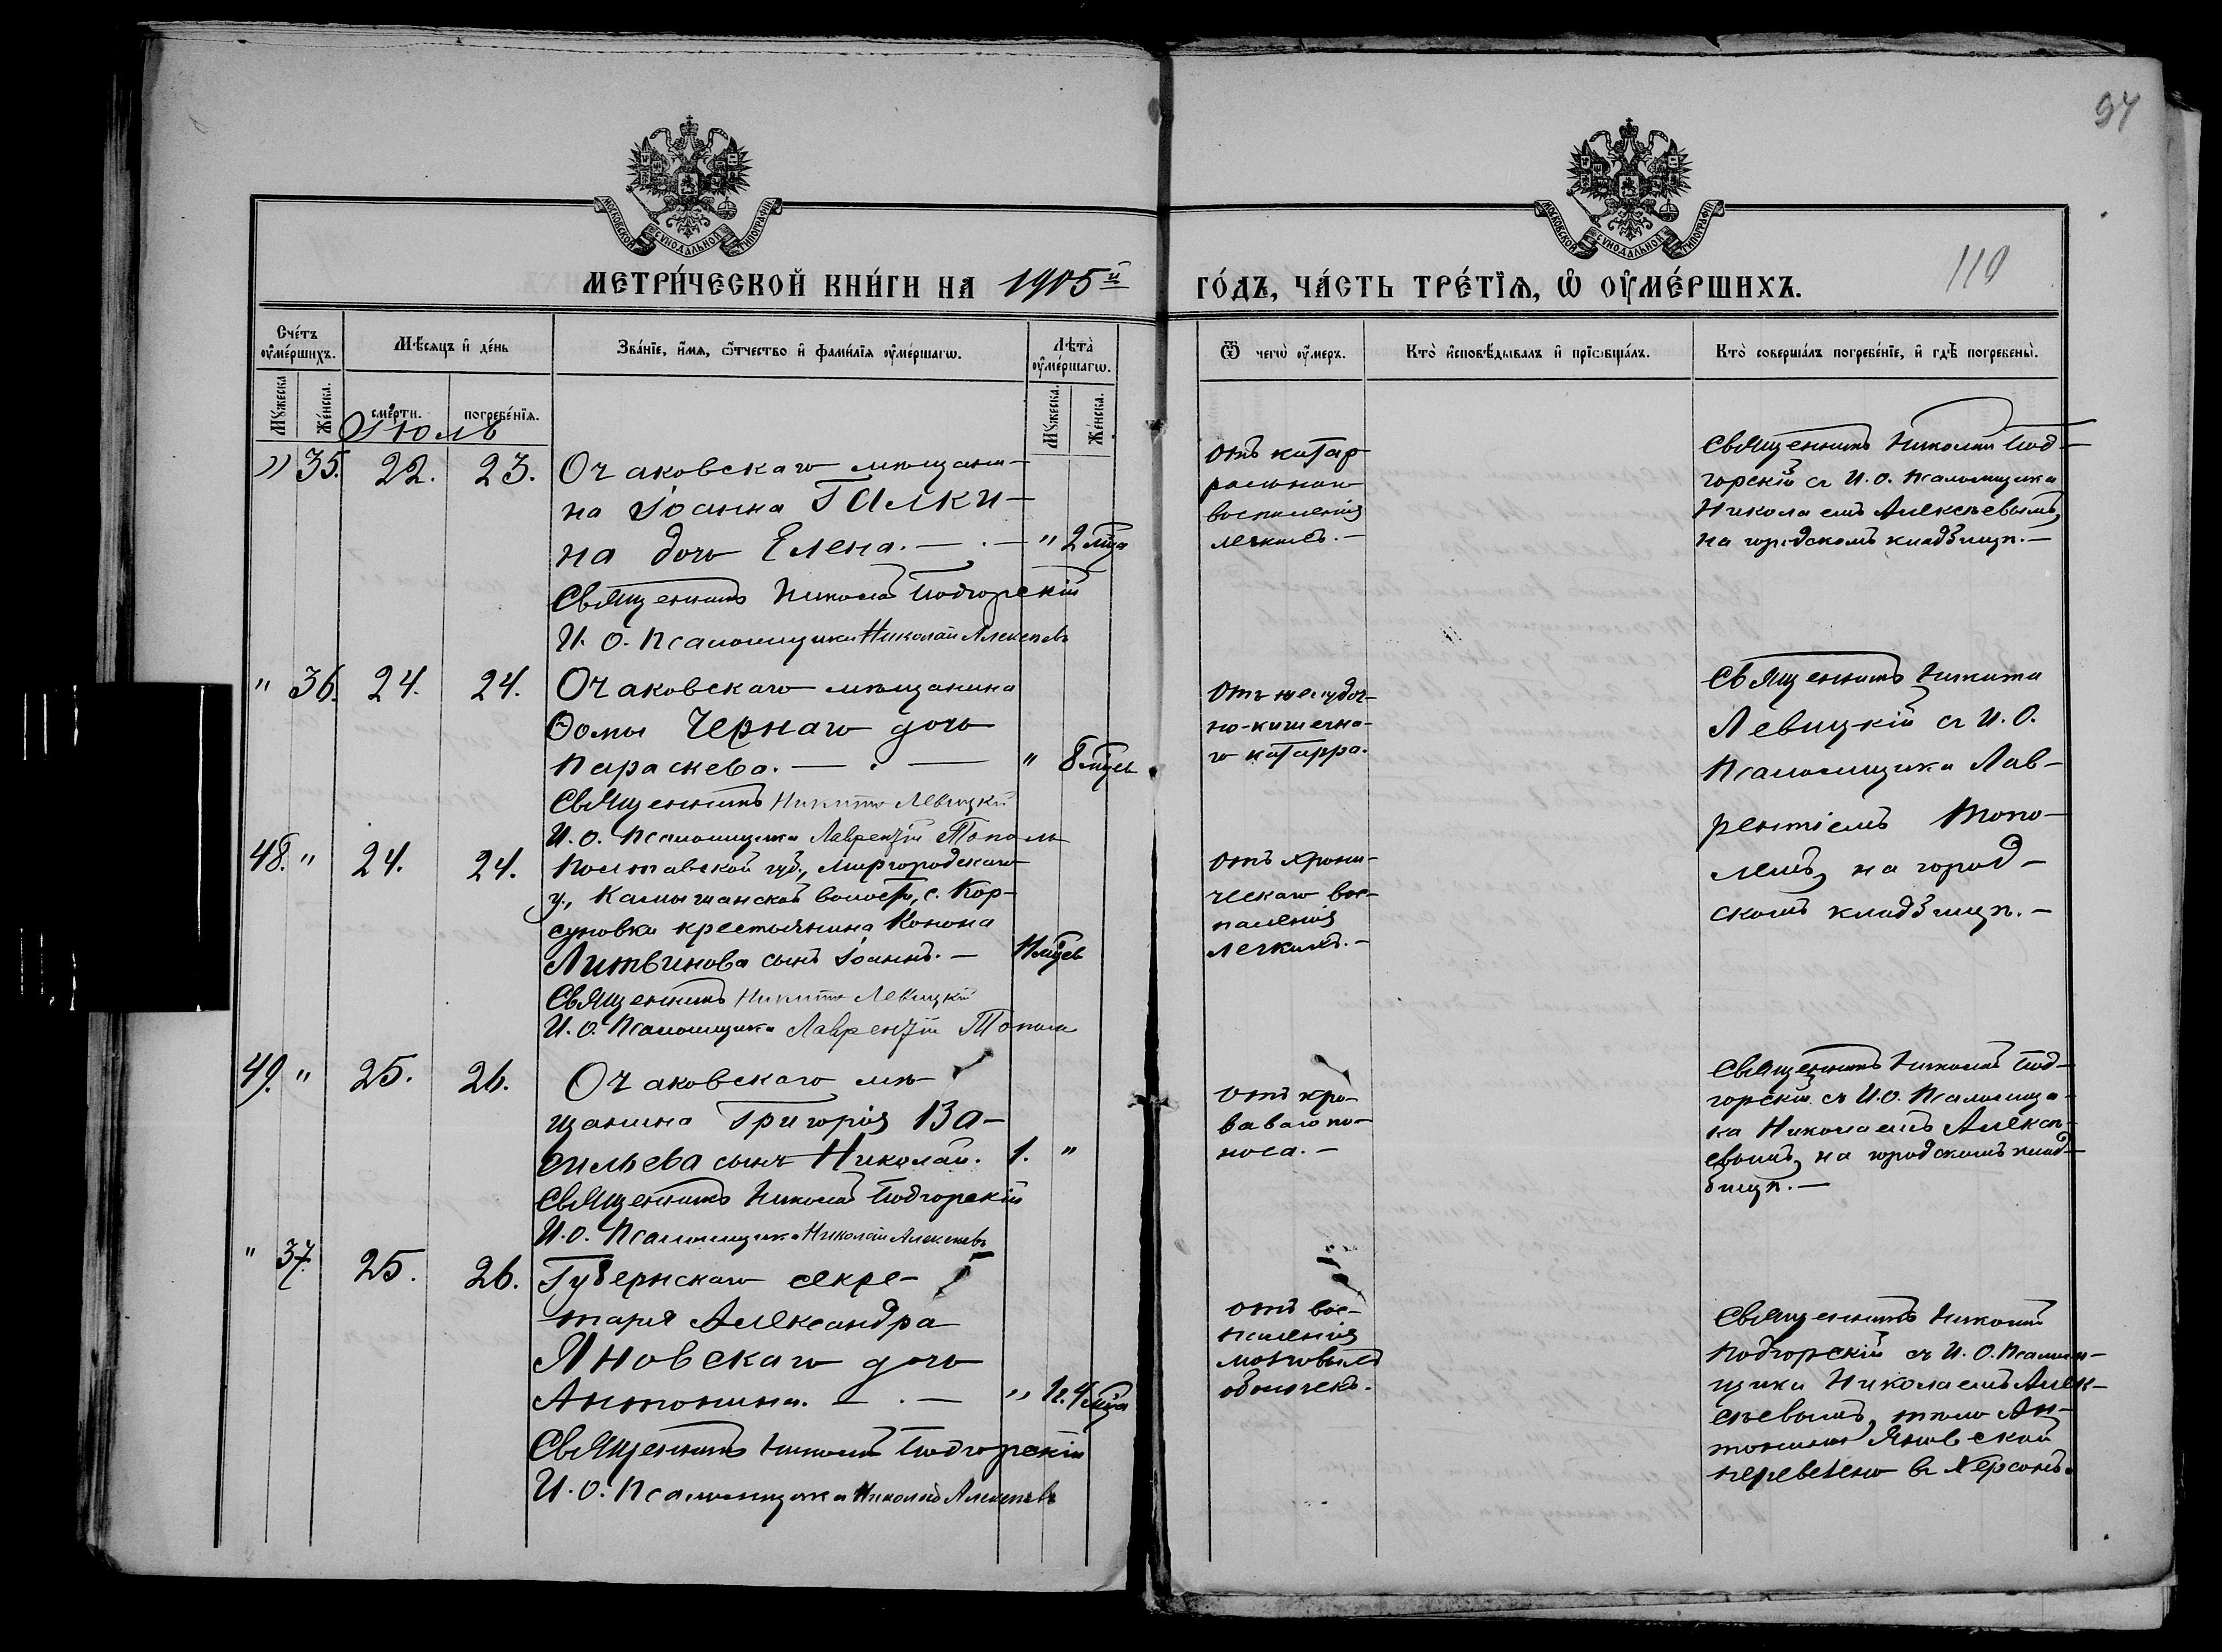 94
110
МОСКОВСКОЙ СѴНОДАЛЬНОЙ ТИПОГРАФІИ
МОСКОВСКОЙ СѴНОДАЛЬНОЙ ТИПОГРАФІИ
МЕТРИ́ЧЕСКОЙ КНИ́ГИ НА 1905й ГО́ДЪ, ЧА́СТЬ ТРЕ́ТЇѦ, Ѡ҆ ОУ҆МЕ́РШИХЪ.
Сче́тъ оу҆ме́ршихъ.
Мѣ́сяцъ и҆ де́нь
Зва́нїе, и҆́мѧ, ѻ҆́тчество и҆ фами́лїѧ оу҆ме́ршагѡ.
Лѣта̀ оу҆ме́ршагѡ.
Ѿ чегѡ̀ оу҆́меръ.
Кто̀ и҆сповѣ́дывалъ и҆ прїѡбща́лъ.
Кто̀ соверша́лъ погребе́нїе, и҆ гдѣ̀ погребены̀.
Мꙋ́жеска
Же́нска.
сме́рти.
погребе́нїѧ.
Мꙋ́жеска.
Же́нска.
Іюль
" 35. 22. 23.
Очаковскаго мѣщани-
на Іоанна Галки-
на дочь Елена. — . — " 2 мца
Священникъ Николай Подгорскій
И. О. Псаломщика Николай Алексѣевъ
отъ катар
ральнаго
воспаленія
легкихъ. —
Священникъ Николай Под-
горскій съ И. О. псаломщика
Николаемъ Алексѣевымъ,
на городскомъ кладбищѣ. —
" 36. 24. 24.
Очаковскаго мѣщанина
Ѳомы Чернаго дочь
Параскева. — . — " 8 мцевъ
Священникъ Никита Левицкій
И. О. Псаломщика Лаврентій Тополь
Отъ желудоч-
но-кишечна-
го катарра.
Священникъ Никита
Левицкій съ И. О.
Псаломщика Лав-
рентіемъ Топо-
лемъ, на город-
скомъ кладбищѣ. —
48. " 24. 24.
Полтавской губ., Миргородскаго
у., Камышанской волости, с. Кор-
суновки крестьянина Конона
Литвинова сынъ Іоаннъ. — 11 мцевъ
Священникъ Никита Левицкій
И. О. Псаломщика Лаврентій Тополь
отъ хрони-
ческаго вос-
паленія
легкихъ. —
49. " 25. 26.
Очаковскаго мѣ-
щанина Григорія Ва-
сильева сынъ Николай. 1. "
Священникъ Николай Подгорскій
И. О. Псаломщика Николай Алексѣевъ
отъ кро-
ваваго по-
носа. —
Священникъ Николай Под-
горскій съ И. О. Псаломщи-
ка Николаемъ Алексѣ-
евымъ, на городскомъ клад-
бищѣ. —
" 37. 25. 26.
Губернскаго секре-
таря Александра
Яновскаго дочь
Антонина. — . — " 1г. 4 мца
Священникъ Николай Подгорскій
И. О. Псаломщика Николай Алексѣевъ
отъ вос-
паленія
мозговыхъ
оболочекъ.
Священникъ Николай
Подгорскій съ И. О. Псалом-
щика Николаемъ Алек-
сѣевымъ, тѣло Ан-
тонины Яновской
перевезено въ Херсонъ.